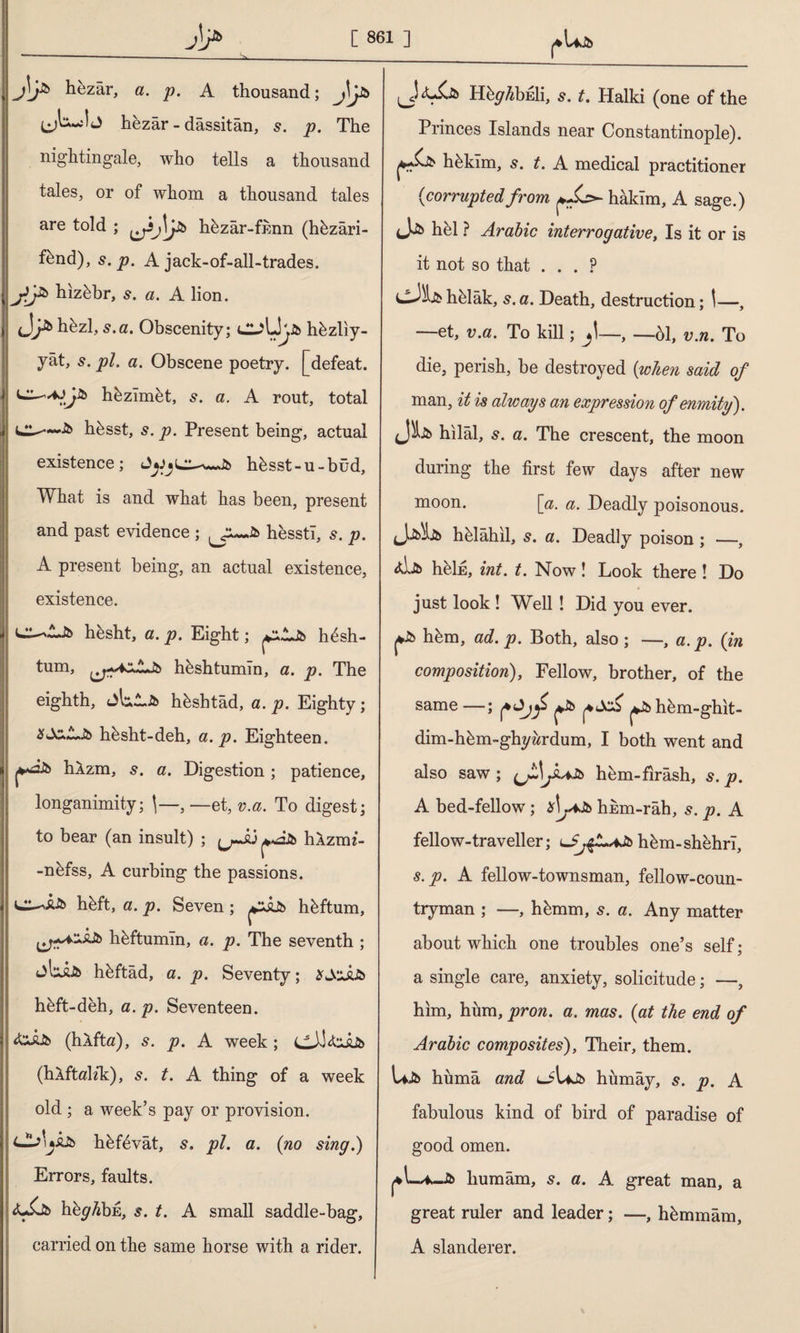 هزار [ 861 ] همام
هزار hèzār, a. p. A thousand; هزار
داستان hèzār-dāssitān, s. p. The
nightingale, who tells a thousand
tales, or of whom a thousand tales
are told; هزارفن hèzār-fᴇnn (hèzāri-
fènd), s. p. A jack-of-all-trades.
هزبر hizèbr, s. a. A lion.
هزل hèzl, s. a. Obscenity; هزليات hèzlīy-
yāt, s. pl. a. Obscene poetry. [defeat.
هزيمت hèzīmèt, s. a. A rout, total
هست hèsst, s. p. Present being, actual
existence; هست وبود hèsst-u-būd,
What is and what has been, present
and past evidence; هستى hèsstī, s. p.
A present being, an actual existence,
existence.
هشت hèsht, a. p. Eight; هشتم hésh-
tum, هشتمين hèshtumīn, a. p. The
eighth, هشتاد hèshtād, a. p. Eighty;
هشتده hèsht-deh, a. p. Eighteen.
هضم hàzm, s. a. Digestion; patience,
longanimity; ا—, —et, v.a. To digest;
to bear (an insult); هضم نفس hàzmi-
-nèfss, A curbing the passions.
هفت hèft, a. p. Seven; هفتم hèftum,
هفتمين hèftumīn, a. p. The seventh;
هفتاد hèftād, a. p. Seventy; هفتده
hèft-dèh, a. p. Seventeen.
هفته (hàfta), s. p. A week; هفته‌لك
(hàftalik), s. t. A thing of a week
old; a week's pay or provision.
هفوات hèfévāt, s. pl. a. (no sing.)
Errors, faults.
هكبه hèghbᴇ, s. t. A small saddle-bag,
carried on the same horse with a rider.
هكبه‌لى Hèghbᴇli, s. t. Halki (one of the
Princes Islands near Constantinople).
هكيم hèkīm, s. t. A medical practitioner
(corrupted from حكيم hàkīm, A sage.)
هل hèl? Arabic interrogative, Is it or is
it not so that . . . ?
هلاك hèlāk, s. a. Death, destruction; ا—,
—et, v.a. To kill; او—, —òl, v.n. To
die, perish, be destroyed (when said of
man, it is always an expression of enmity).
هلال hilāl, s. a. The crescent, the moon
during the first few days after new
moon. [a. a. Deadly poisonous.
هلاهل hèlāhil, s. a. Deadly poison; —,
هله hèlᴇ, int. t. Now! Look there! Do
just look! Well! Did you ever.
هم hèm, ad. p. Both, also; —, a. p. (in
composition), Fellow, brother, of the
same —; هم كتدم هم كوردم hèm-ghit-
dim-hèm-ghyurdum, I both went and
also saw; همفراش hèm-firāsh, s. p.
A bed-fellow; همراه hᴇm-rāh, s. p. A
fellow-traveller; همشهرى hèm-shèhrī,
s. p. A fellow-townsman, fellow-coun-
tryman; —, hèmm, s. a. Any matter
about which one troubles one's self;
a single care, anxiety, solicitude; —,
him, hum, pron. a. mas. (at the end of
Arabic composites), Their, them.
هما humā and هماى humāy, s. p. A
fabulous kind of bird of paradise of
good omen.
همام humām, s. a. A great man, a
great ruler and leader; —, hèmmām,
A slanderer.